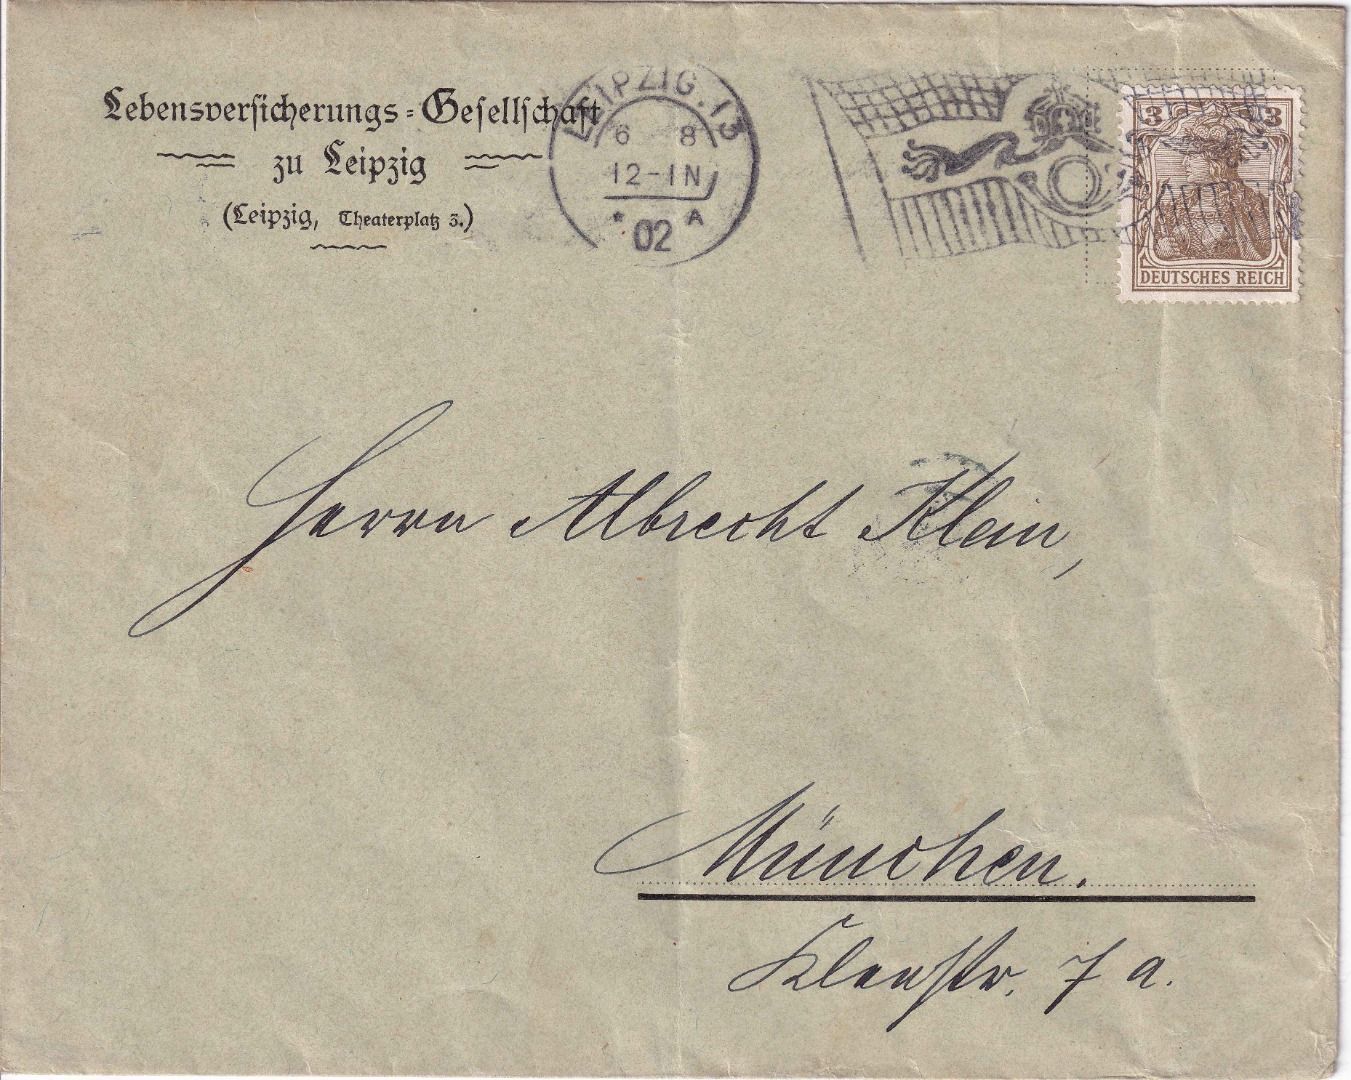 Lebensversicherungs-Gesellschaft
zu Leipzig
(Leipzig, Theaterplatz 3.)
LEIPZIG. 13
6 8
12-1N
* 02 A
3 3
DEUTSCHES REICH
Herrn Albrecht Klein,
München.
Klenstr. 7 a.